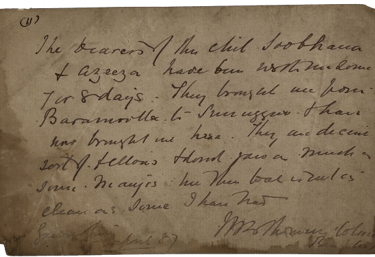 (11)
The bearers of this chit Soobhana
& Azeeza have been with me some
7 or 8 days. They brought me from
Baramoolla to Srinuggur & have
now brought me here. They are decent
sort of fellows & dont jaw much as
some Manjis. in their boat is not as
clean as some I have had
April 87